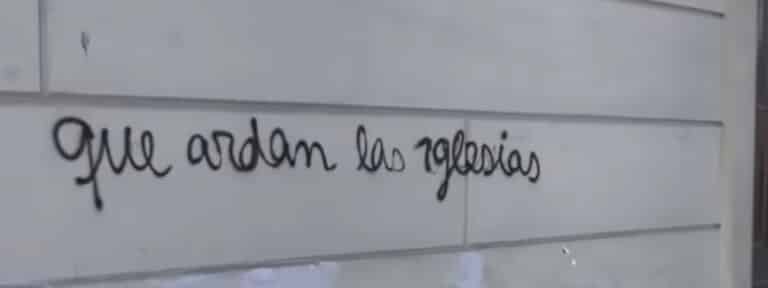 que ardan las iglesias